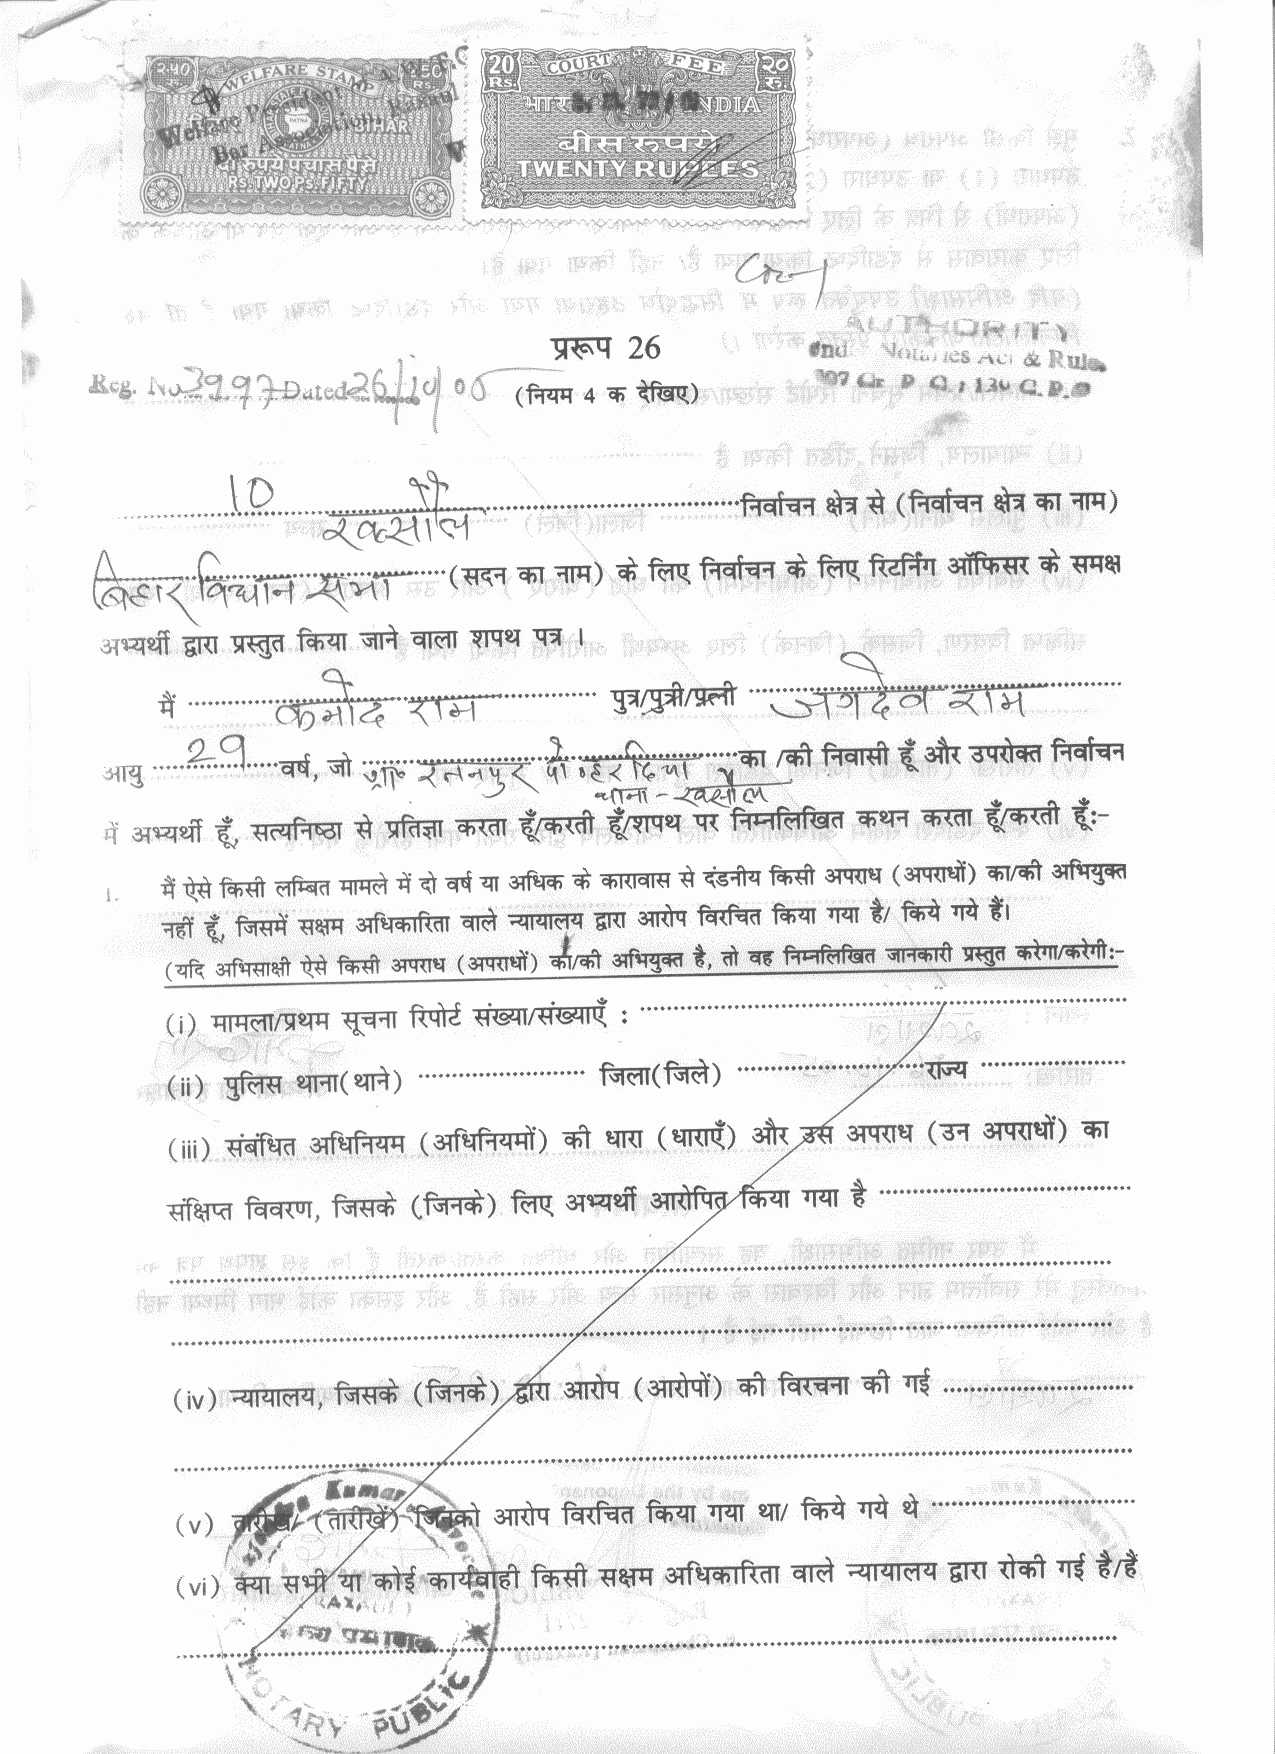 २.५० WELFARE STAMP 2.50 RS.
BIHAR
दो रुपये पचास पैसे
RS. TWO. PS. FIFTY
Welfare
Bar Association, Raxaul
20 RS. COURT FEE २० रु.
भारत INDIA
बीस रुपये
TWENTY RUPEES
AUTHORITY
Notaries Act & Rule
प्ररूप 26
Reg. No 3997 Dated 26/10/05
(नियम 4 क देखिए)
10 रक्सौल निर्वाचन क्षेत्र से (निर्वाचन क्षेत्र का नाम)
बिहार विधान सभा (सदन का नाम) के लिए निर्वाचन के लिए रिटर्निंग ऑफिसर के समक्ष
अभ्यर्थी द्वारा प्रस्तुत किया जाने वाला शपथ पत्र ।
मैं कमोद राम पुत्र/पुत्री/पत्नी जगदेव राम
आयु 29 वर्ष, जो ग्रा० रतनपुर पो० हरदिया का /की निवासी हूँ और उपरोक्त निर्वाचन
थाना - रक्सौल
में अभ्यर्थी हूँ, सत्यनिष्ठा से प्रतिज्ञा करता हूँ/करती हूँ/शपथ पर निम्नलिखित कथन करता हूँ/करती हूँ:-
1. मैं ऐसे किसी लम्बित मामले में दो वर्ष या अधिक के कारावास से दंडनीय किसी अपराध (अपराधों) का/की अभियुक्त
नहीं हूँ, जिसमें सक्षम अधिकारिता वाले न्यायालय द्वारा आरोप विरचित किया गया है/ किये गये हैं।
(यदि अभिसाक्षी ऐसे किसी अपराध (अपराधों) का/की अभियुक्त है, तो वह निम्नलिखित जानकारी प्रस्तुत करेगा/करेगी:-
(i) मामला/प्रथम सूचना रिपोर्ट संख्या/संख्याएँ :
(ii) पुलिस थाना(थाने) जिला(जिले) राज्य
(iii) संबंधित अधिनियम (अधिनियमों) की धारा (धाराएँ) और उस अपराध (उन अपराधों) का
संक्षिप्त विवरण, जिसके (जिनके) लिए अभ्यर्थी आरोपित किया गया है
(iv) न्यायालय, जिसके (जिनके) द्वारा आरोप (आरोपों) की विरचना की गई
(v) तारीख/ (तारीखें) जिनको आरोप विरचित किया गया था/ किये गये थे
(vi) क्या सभी या कोई कार्यवाही किसी सक्षम अधिकारिता वाले न्यायालय द्वारा रोकी गई है/हैं
Kumar
NOTARY PUBLIC